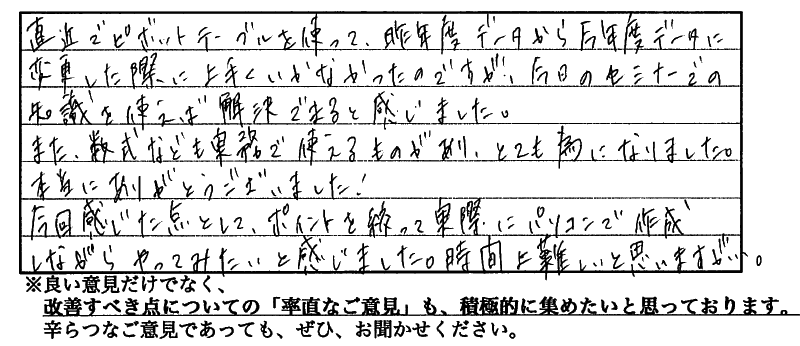 直近でピボットテーブルを使って、昨年度データから今年度データに
変更した際に上手くいかなかったのですが、今日のセミナーでの
知識を使えば解決できると感じました。
また、数式なども実務で使えるものがあり、とても為になりました。
本当にありがとうございました!
今回感じた点として、ポイントを絞って実際にパソコンで作成
しながらやってみたいと感じました。時間上難しいと思いますが…。
※良い意見だけでなく、
改善すべき点についての「率直なご意見」も、積極的に集めたいと思っております。
辛らつなご意見であっても、ぜひ、お聞かせください。